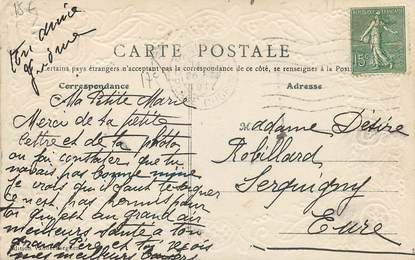 15 €
Ton amie
CARTE POSTALE
Certains pays étrangers n'acceptant pas la correspondance de ce côté, se renseigner à la Poste
Correspondance
Adresse
15c
Ma Petite Marie
Merci de la petite
lettre et de la photo
on fai constater que tu
navais pas bonne mine
je crois qu'il faut te soigner
ce nest pas permis pour
toi qui est au grand air
meilleurs santé à ton
Grand Père et toi reçois
mes meilleurs Baisers
Madame Désire
Robillard
Serquigny
Eure